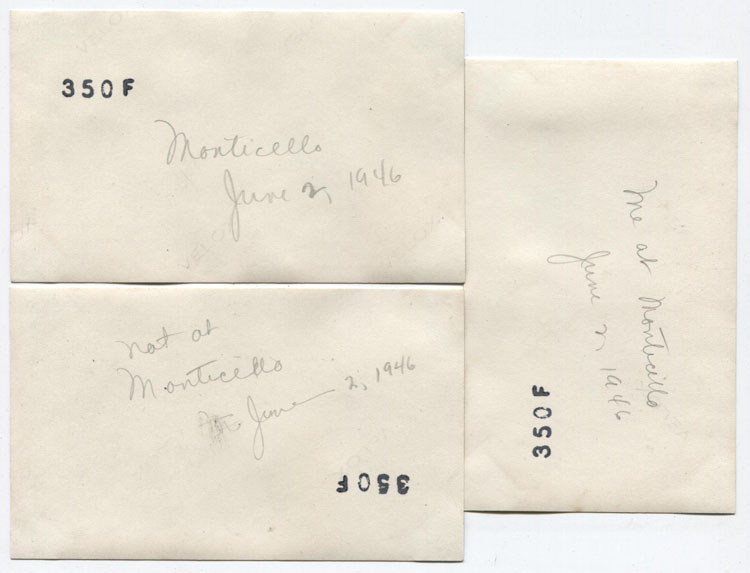 350F
Monticello
June 2, 1946
Nat at
Monticello
June 2, 1946
350F
Me at Monticello
June 2, 1946
350F